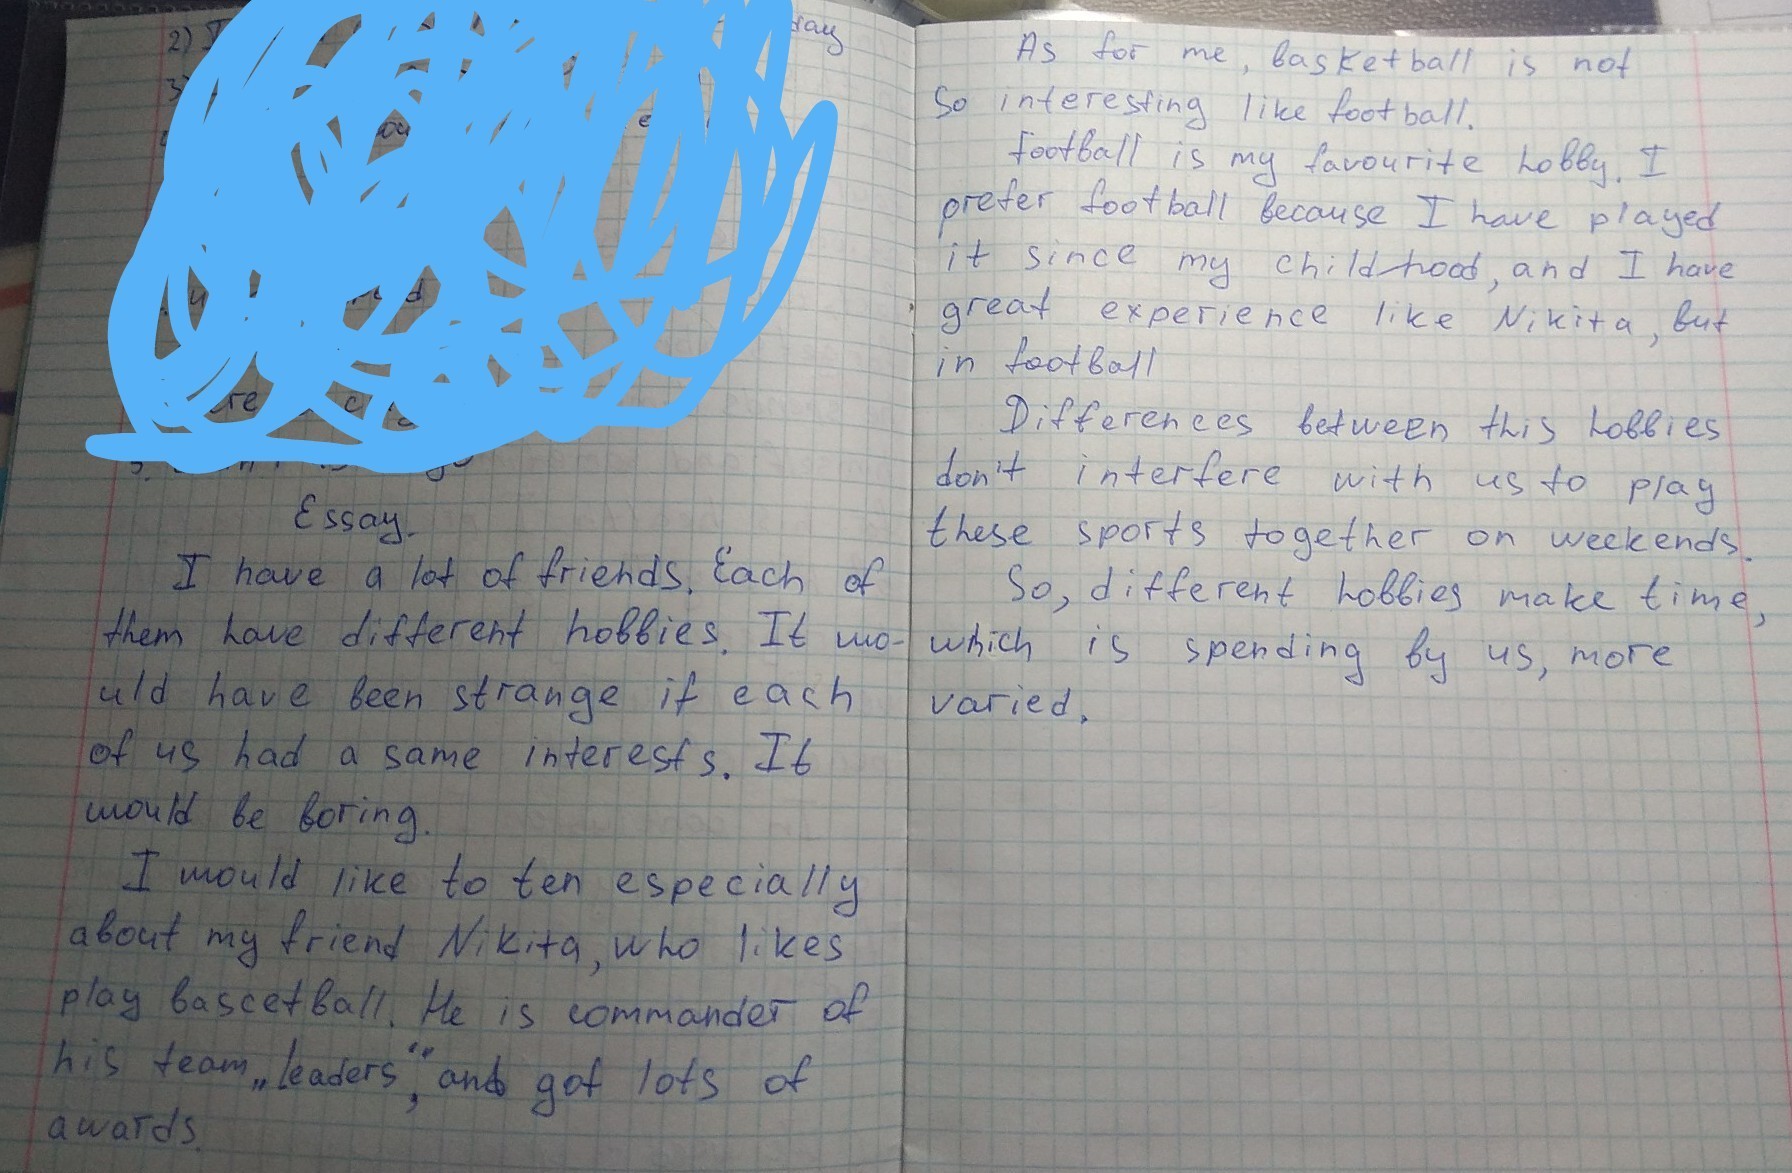 2)
Essay.
I have a lot of friends. Each of
them have different hobbies. It wo-
uld have been strange if each
of us had a same interests. It
would be boring.
I would like to ten especially
about my friend Nikita, who likes
play bascetball. He is commander of
his team „leaders“, and got lots of
awards.
As for me, basketball is not
so interesting like football.
Football is my favourite hobby. I
prefer football because I have played
it since my childhood, and I have
great experience like Nikita, but
in football
Differences between this hobbies
don't interfere with us to play
these sports together on weekends.
So, different hobbies make time,
which is spending by us, more
varied.